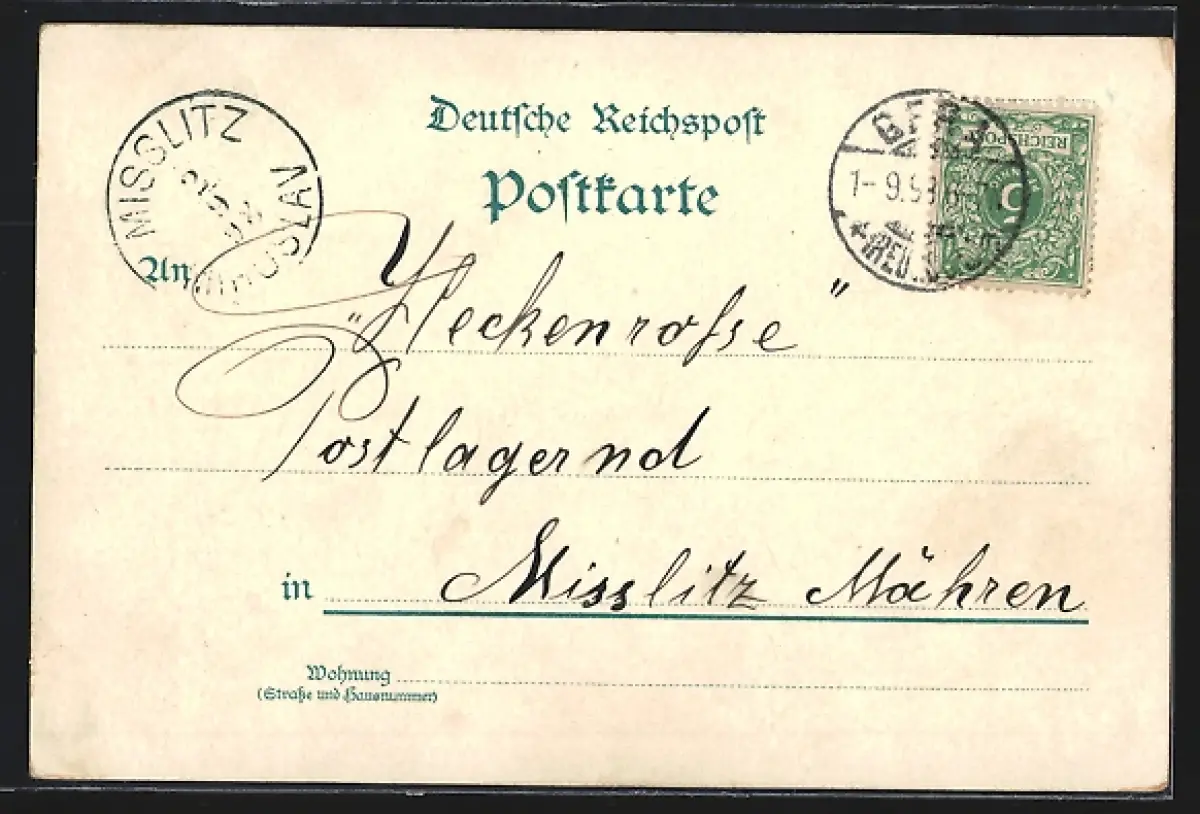 Deutsche Reichspost
Postkarte
MISSLITZ
MIROSLAV
REICHSPOST
5
GERA
1-9.98.
An
"Heckenrosse"
Postlagernd
in Misslitz Mähren
Wohnung
(Straße und Hausnummer)